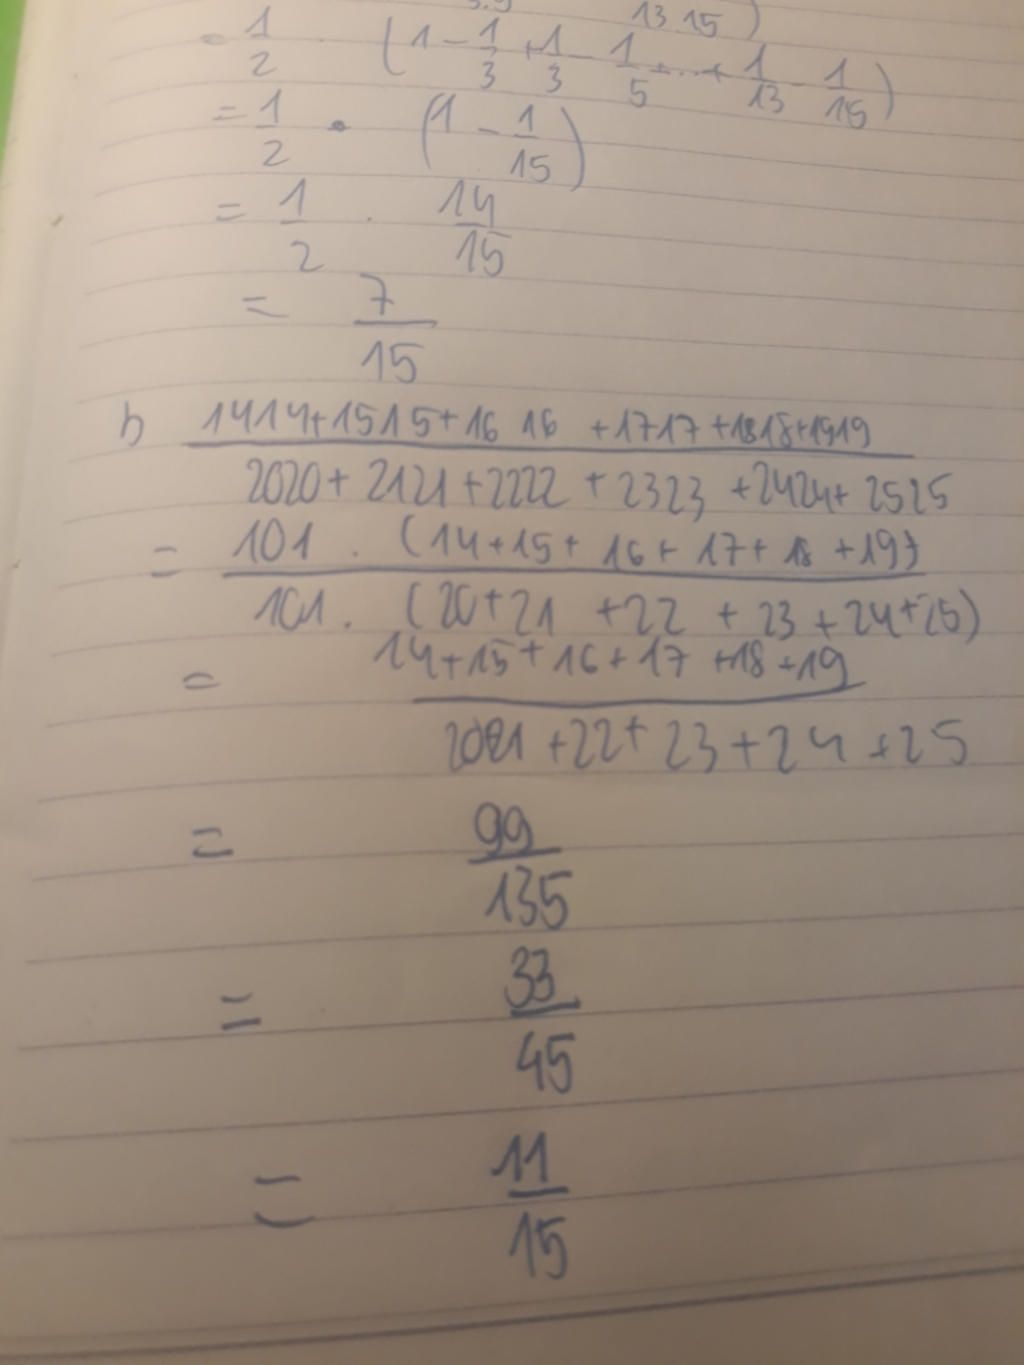 3.5 13.15 )
= 1/2 · (1 - 1/3 + 1/3 - 1/5 + ... + 1/13 - 1/15)
= 1/2 · (1 - 1/15)
= 1/2 · 14/15
= 7/15
b 1414+1515+16 16 +1717+1818+1919
2020+ 2121+2222 +2323 +2424+ 2525
= 101 . (14+15+ 16+ 17+ 18 +19)
101. (20+21 +22 + 23+24+25)
= 14+15+16+17 +18+19
2021 +22+ 23+24 +25
= 99/135
= 33/45
= 11/15